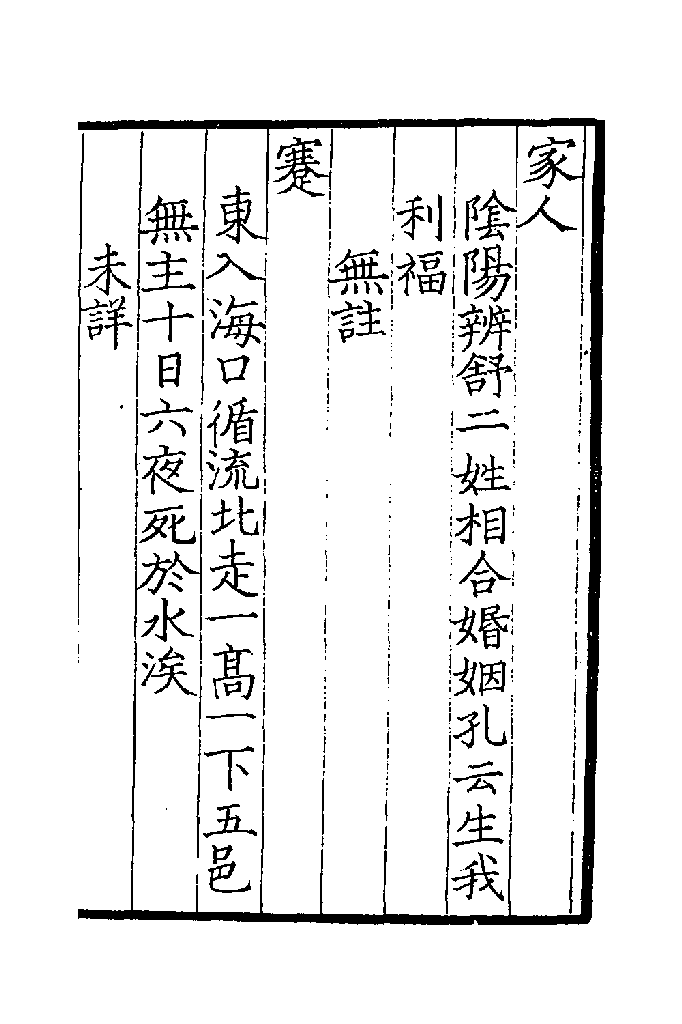 家人
陰陽辨舒二姓相合婚姻孔云生我
利福
無註
蹇
東入海口循流北走一髙一下五邑
無主十日六夜死於水涘
未詳